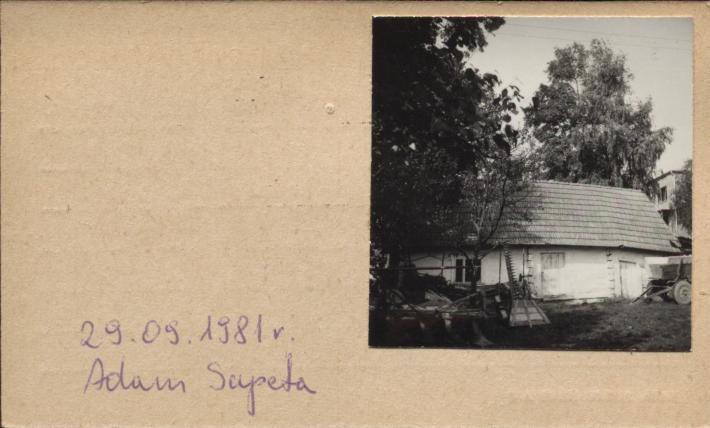 29.09.1981 r.
Adam Sapeta